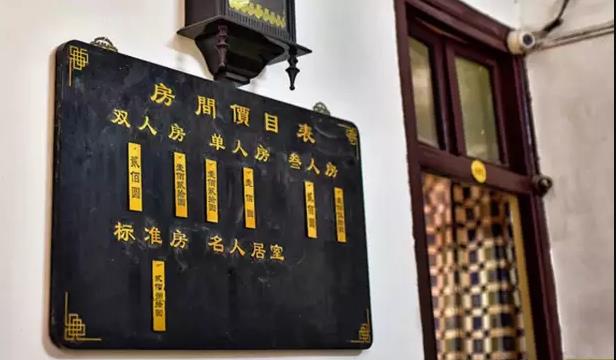 房間價目表
双人房 单人房 叁人房
贰佰圆
壹佰贰拾圆
壹佰贰拾圆
壹佰圆
贰佰圆
壹佰伍拾圆
标准房 名人居室